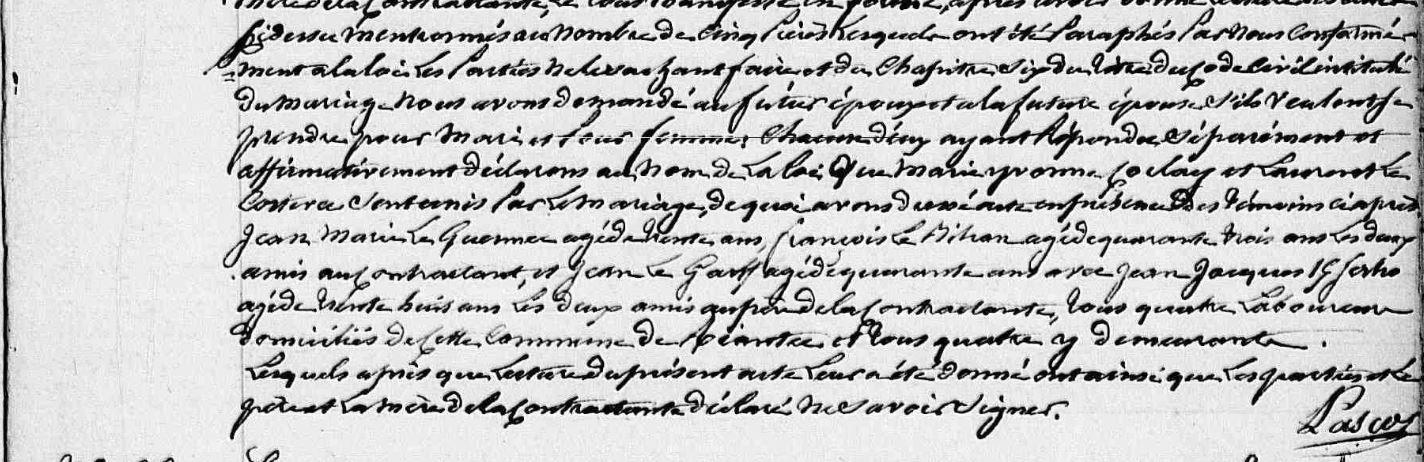 mère de la Contractante, le tout manifesté en forme, après avoir donné lecture des actes
ci dessus mentionnés au nombre de Cinq pièces lesquels ont été Paraphés Par Nous Conformé-
-ment a la loi Les Parties Relevachant faire et du Chapitre Six du titre du Code Civil intitulé
du Mariage Nous avons demandé au futur époux et a la future épouse s'ils veulent se
prendre pour Mari et pour femme, Chacun d'eux ayant Répondu Séparément et
affirmativement déclarons au Nom de La loi Que Marie yvonne et Laurent Le
Sont unis Par Le Mariage, de quoi avons dressé acte en présence Des témoins ci après
Jean Marie Le Guennec agé de trente ans, françois Le Bihan agé de quarante trois ans Les deux
amis au Contractant, et Jean Le Goff agé de quarante ans avec Jean Jacques
agé de trente huit ans Les deux amis au père de la Contractante, tous quatre Laboureurs
domiciliés de Cette Commune de et tous quatre y demeurante.
Lesquels après que Lecture du présent acte Leur a été donné ont ainsi que Les parties et Le
père et La mère de la Contractante déclaré Ne Savoir Signer.
Pasco